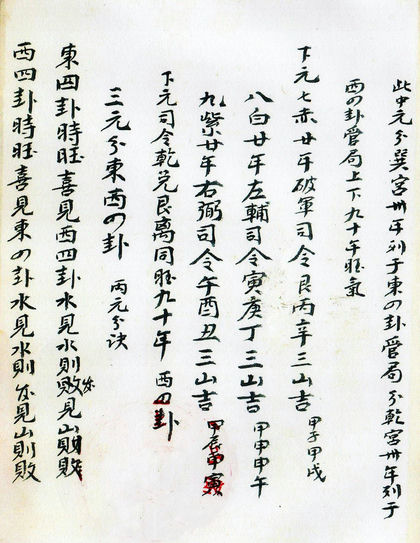 此中元分巽宮卅年列于東の卦管局分乾宮卅年列于
西の卦管局上下九十年旺氣
下元七赤廿年破軍司令艮丙辛三山吉 甲子甲戌
八白廿年左輔司令寅庚丁三山吉 甲申甲午
九紫廿年右弼司令午酉丑三山吉 甲辰甲寅
下元司令乾兌艮離同旺九十年 西四卦
三元分東西の卦 两元分訣
東四卦時旺喜見西四卦水見水則敗发見山則敗
西四卦時旺喜見東の卦水見水則发見山則敗